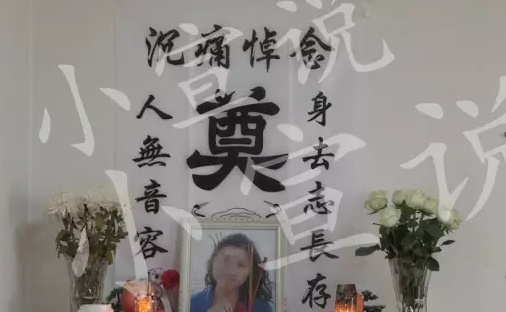 沉痛悼念
身去志長存
奠
人無音容
小宣说
小宣说